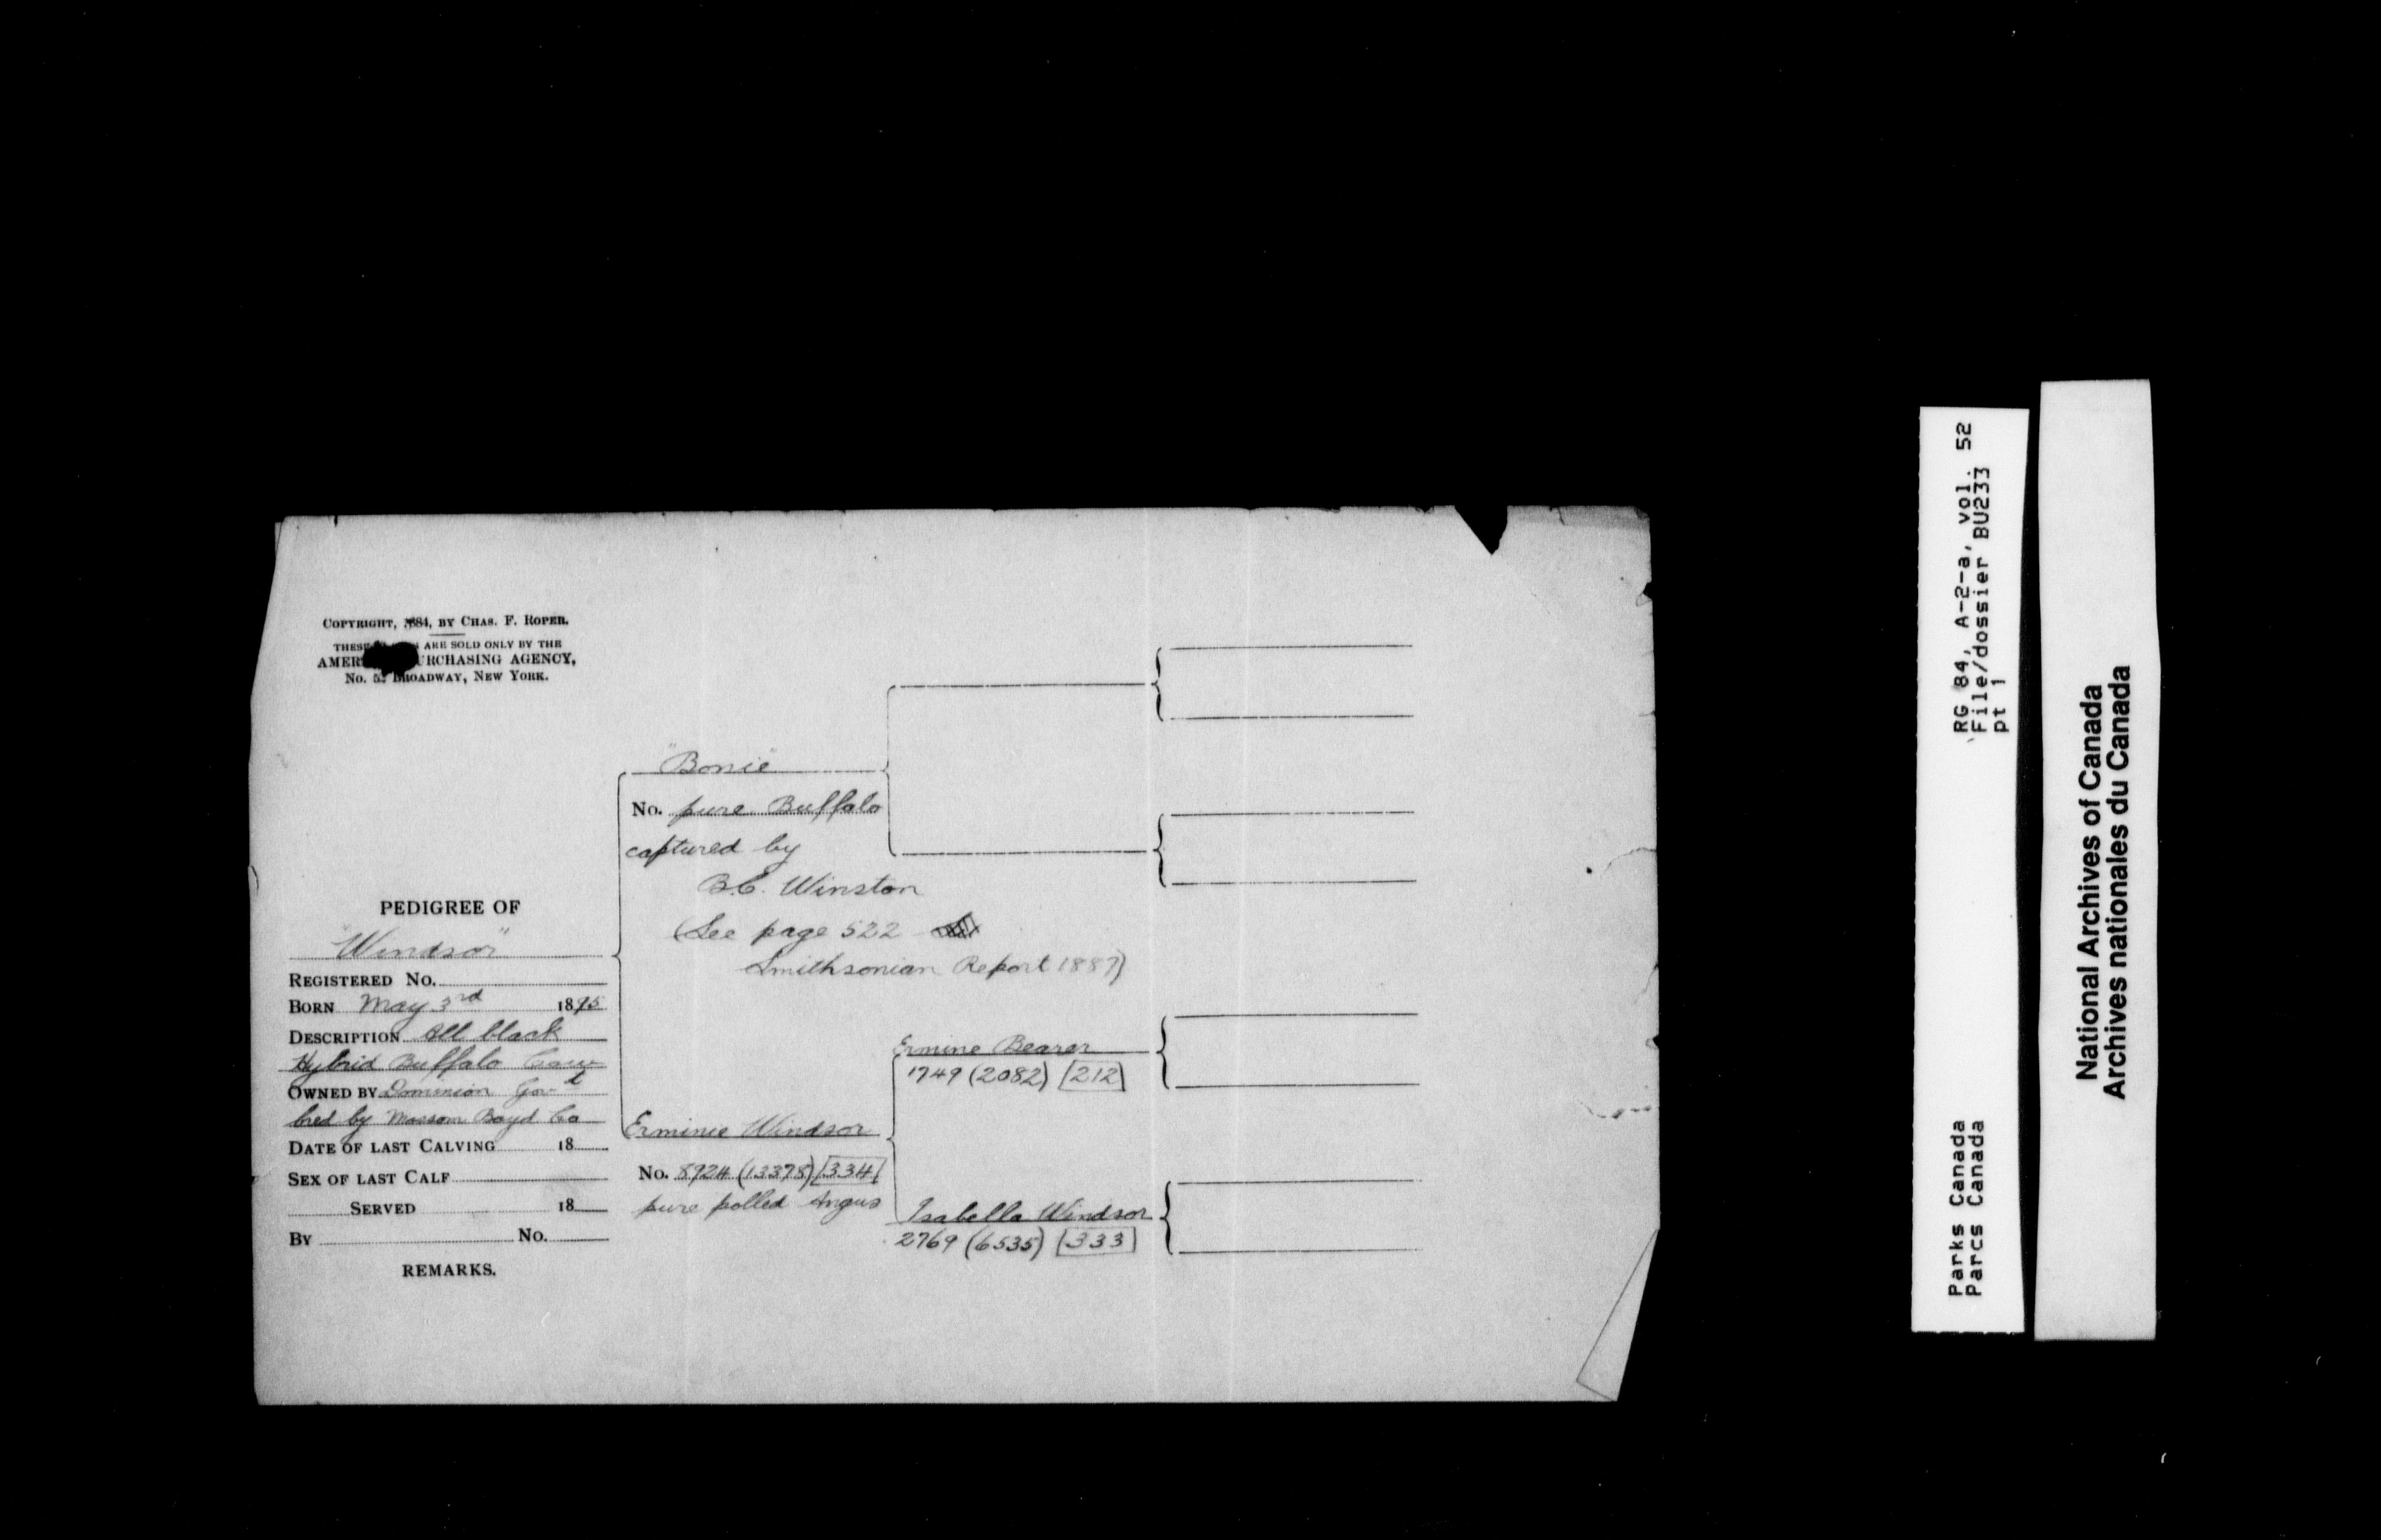 COPYRIGHT, 1884, BY CHAS. F. ROPER.
THESE ARE SOLD ONLY BY THE
PURCHASING AGENCY,
No. BROADWAY, NEW YORK.
PEDIGREE OF
"Windsor"
REGISTERED No.
BORN May 3rd 1895
DESCRIPTION All black
Hybrid Buffalo Cow
OWNED BY Dominion Govt
bred by Mossom Boyd Co
DATE OF LAST CALVING 18
SEX OF LAST CALF
SERVED 18
BY No.
REMARKS.
"Bonie"
No. pure Buffalo
captured by
B.C. Winston
(See page 522
Smithsonian Report 1887)
Erminie Windsor
No. 8924 (13378) [334]
pure polled Angus
Ermine Bearer
1749 (2082) [212]
Isabella Windsor
2769 (6535) [333]
RG 84, A-2-a, vol. 52
File/dossier BU233
pt 1
Parks Canada
Parcs Canada
National Archives of Canada
Archives nationales du Canada